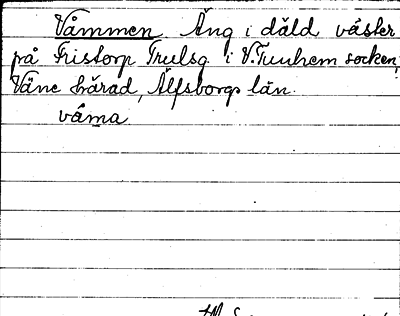 Våmmen Äng i däld väster
på Fristorp Trulsg. i V. Tunhem socken,
Väne härad, Älfsborgs län.
våma